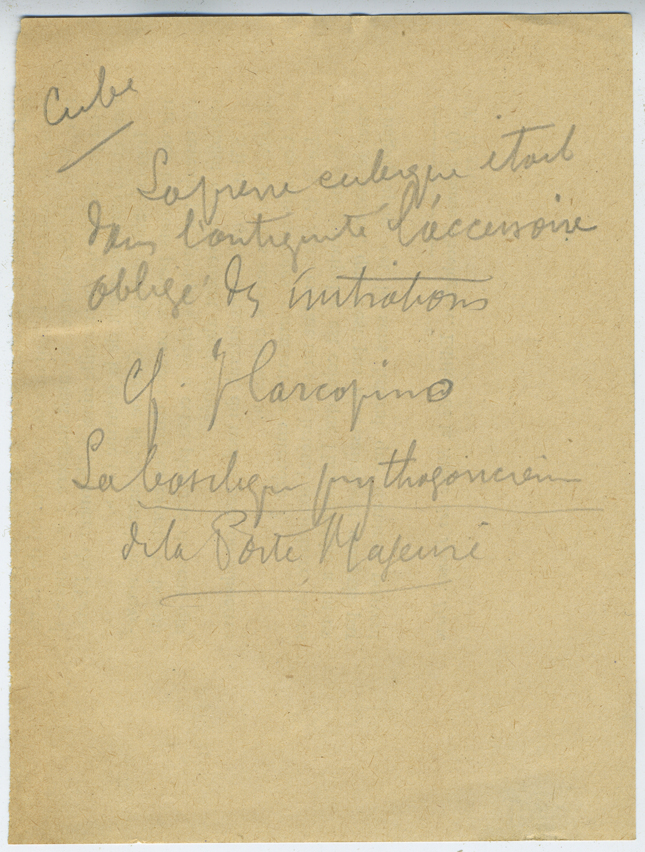 Cube
La pierre cubique était
dans l'antiquité l'accessoire
obligé des initiations
cf. J Carcopino
La basilique pythagoricienne
de la Porte Majeure